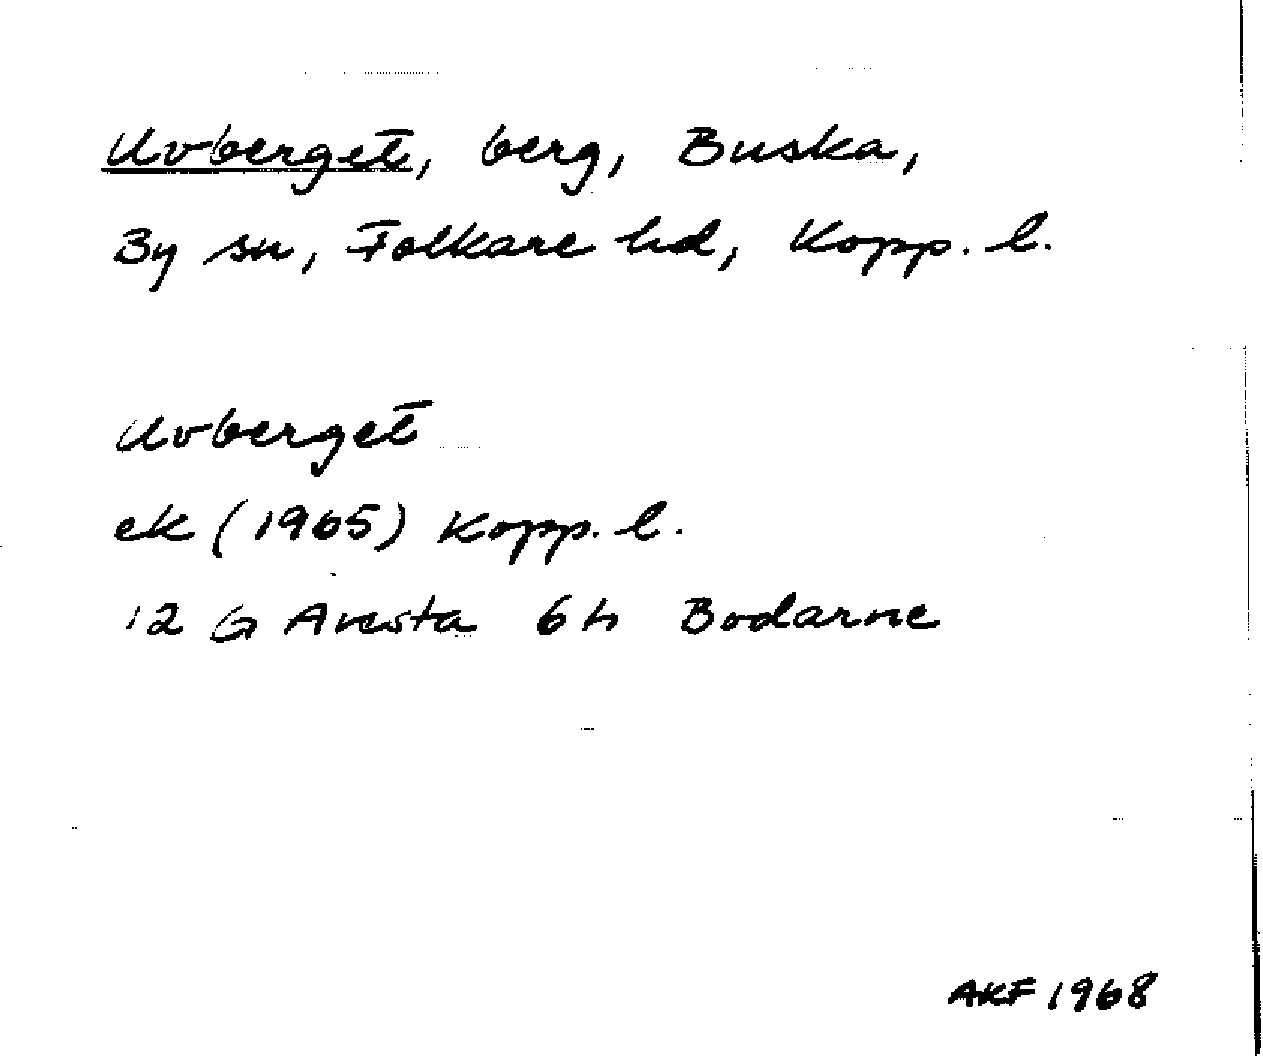 Uvberget, berg, Buska,
By sn, Folkare hd, Kopp. l.
Uvberget
ek (1965) Kopp. l.
12 G Avesta 6h Bodarne
AKF 1968